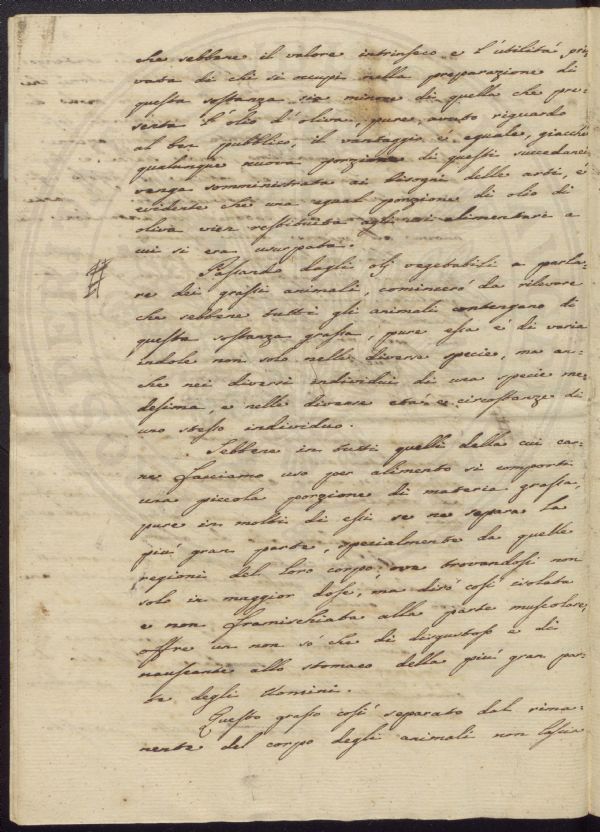 che sebbene il valore intrinseco e l'utilità pri-
vata di chi si occupi nella preparazione di
questa sostanza sia minore di quella che pre-
senta l'olio d'oliva, pure avuto riguardo
al ben pubblico, il vantaggio è eguale, giacchè
qualunque nuova porzione di questi succedanei
venga somministrata ai bisogni delle arti, è
evidente che una egual porzione di olio di
oliva vien restituita agli usi alimentari a
cui si era usurpata.
Passando dagli olj vegetabili a parla-
re dei grassi animali, comincerò da rilevare
che sebbene tutti gli animali contengano di
questa sostanza grassa, pure essa è di varia
indole non solo nelle diverse specie, ma an-
che nei diversi individui di una specie me-
desima, e nelle diverse età e circostanze di
uno stesso individuo.
Sebbene in tutti quelli della cui car-
ne facciamo uso per alimento si comporti
una piccola porzione di materia grassa,
pure in molti di essi se ne separa la
più gran parte, specialmente da quelle
regioni del loro corpo, ove trovandosi non
solo in maggior dose, ma dirò così isolata
e non framischiata alla parte muscolare,
offre un non sò che di disgustoso e di
nauseante allo stomaco della più gran par-
te degli Uomini.
Questo grasso così separato dal rima-
nente del corpo degli animali non lascia